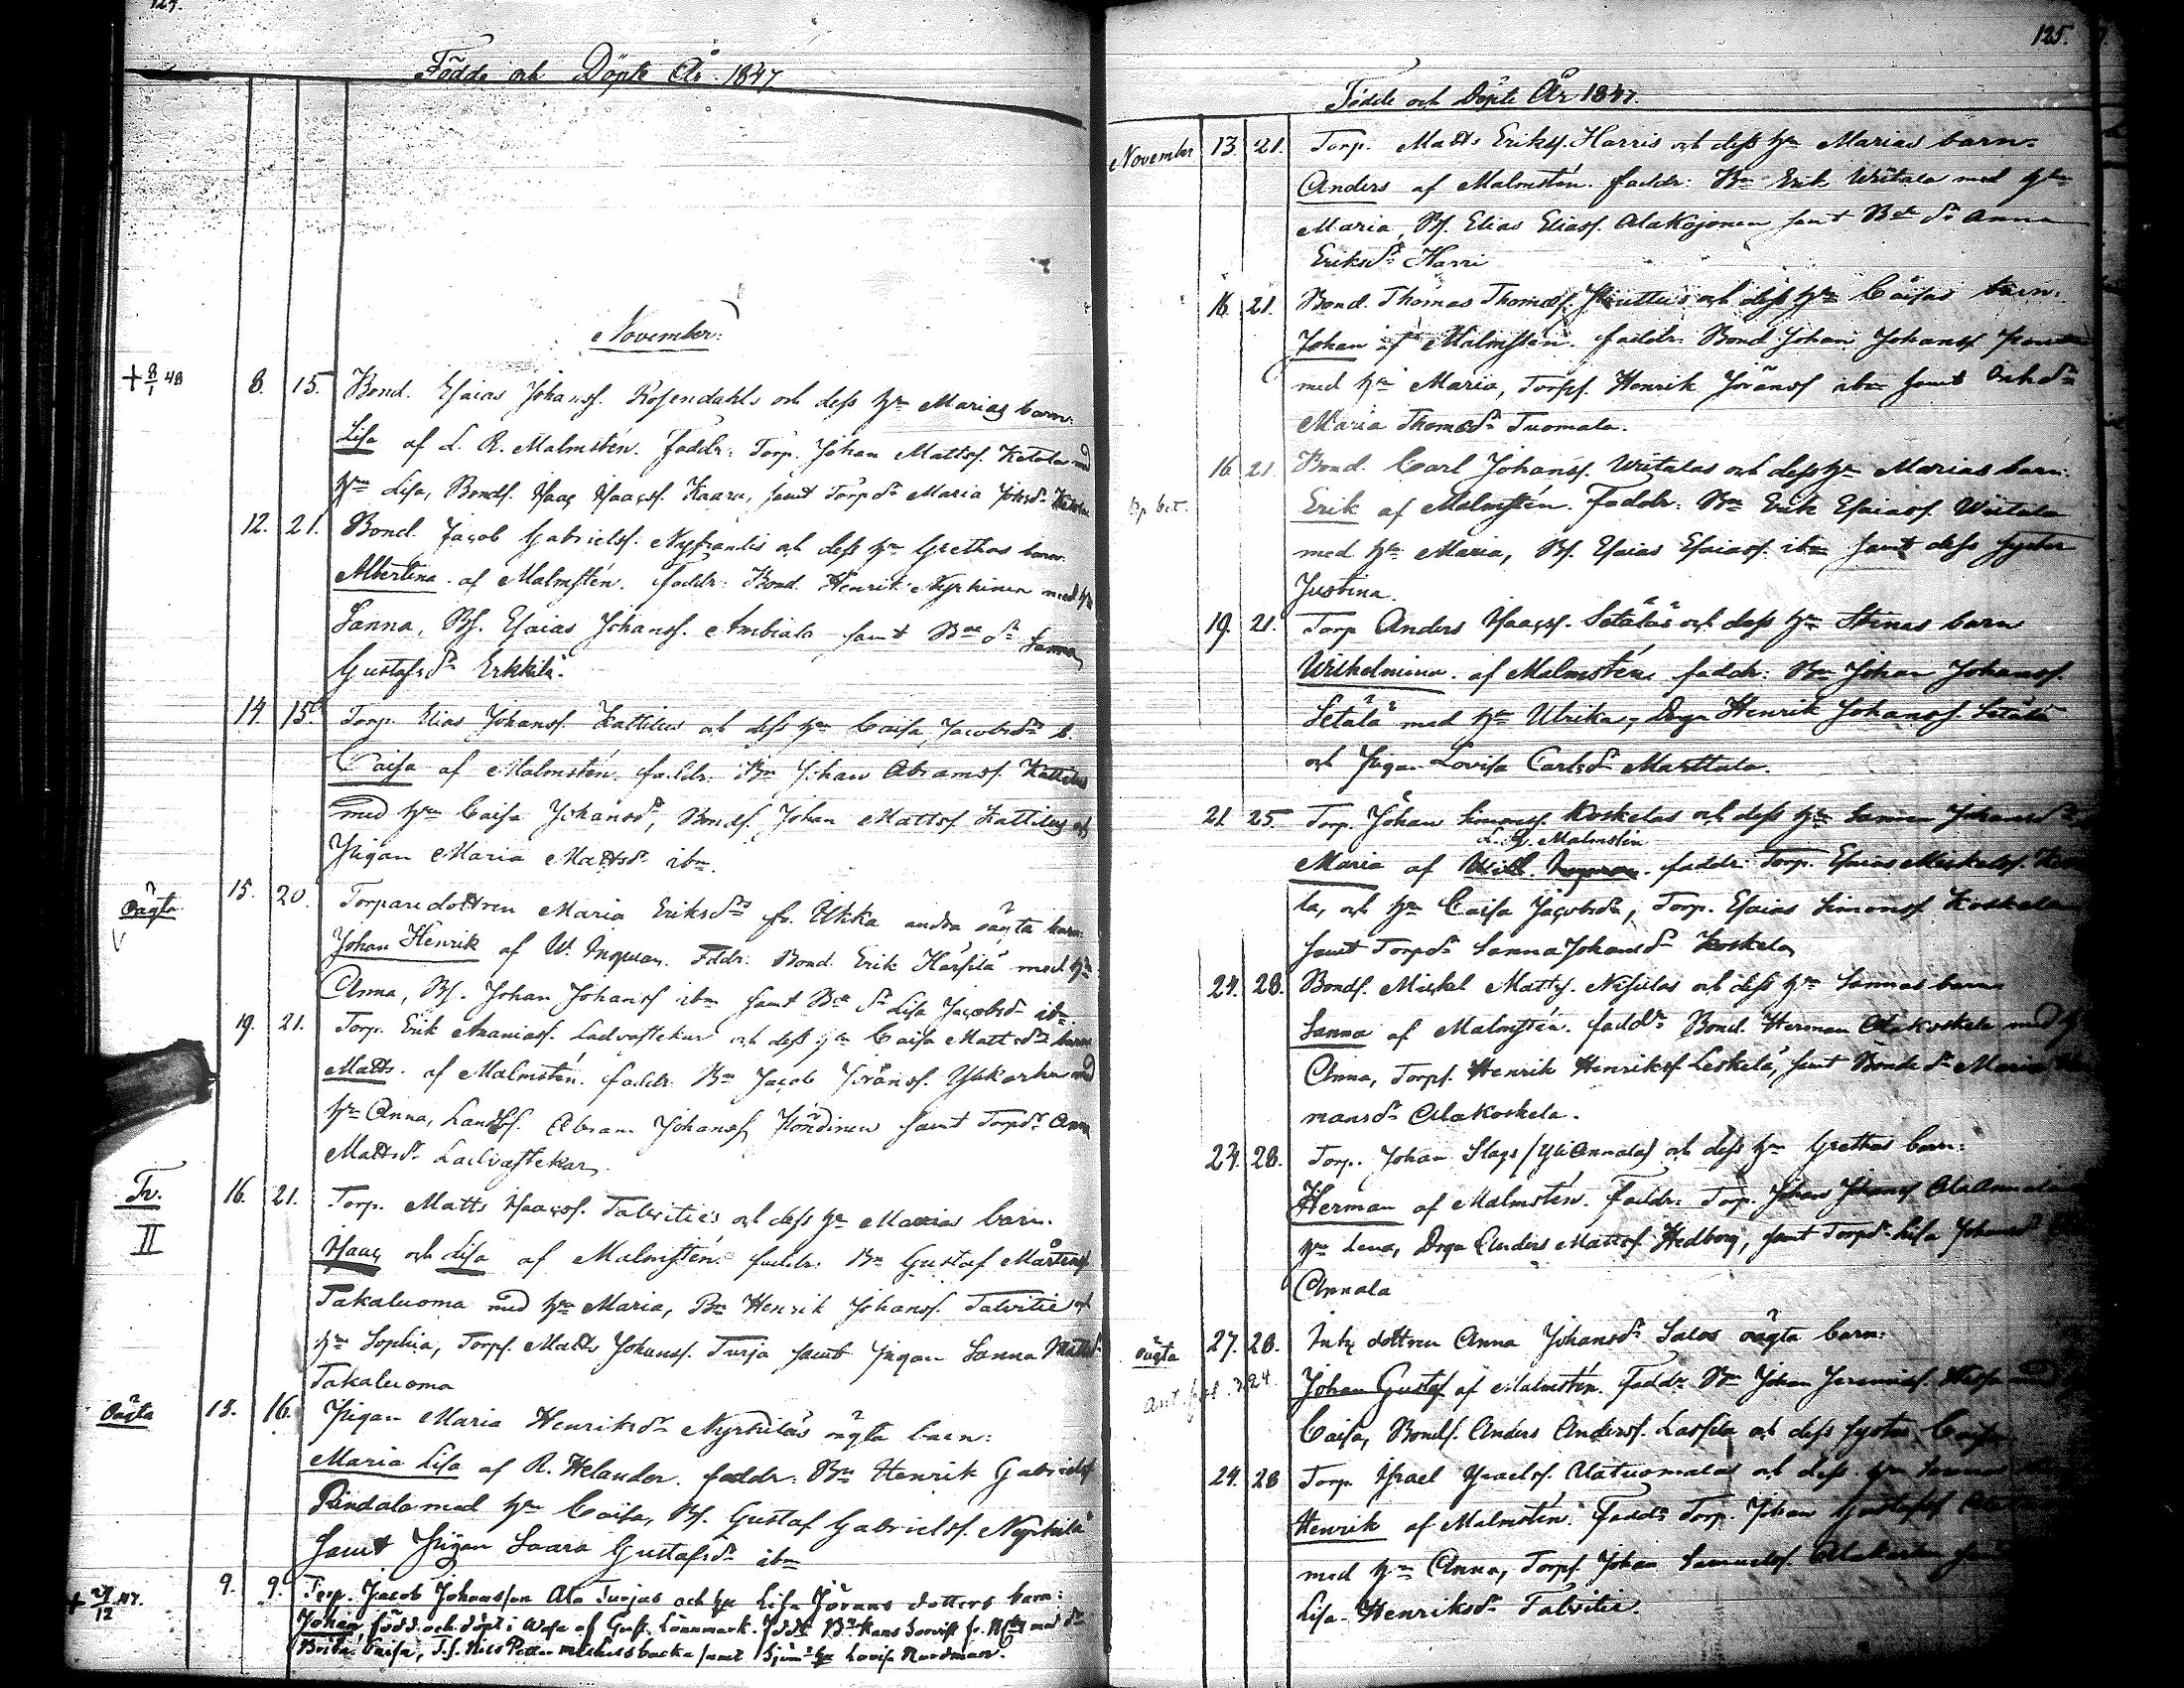 124.
Födde och Döpte År 1847
November:
+ 8/1 48 8. 15. Bond. Esaias Johanss. Rosendahls och dess hu Marias barn:
Lisa af L. R. Malmstén. Faddr: Torp. Johan Mattss. Ketola med
hu Lisa, Bonds. Isaac Isaacss. Kaara, samt Torp dr Maria Johsdr
12. 21. Bond. Jacob Gabrielss. och dess hu Grethas barn
Albertina af Malmstén. Faddr: Bond. Henrik Nyrhinen med hu
Sanna, Bs. Esaias Johanss. Ambiala samt Bde dr Sanna
Gustafsdr Erkkilä.
14 15. Torp. Elias Johanss. Kattilus och dess hu Caisa Jacobsdr b.
Caisa af Malmstén. faddr. Bn Johan Abramss. Kattilus
med hu Caisa Johansdr, Bonds. Johan Mattss. Kattilus och
Pigan Maria Mattsdr ibm.
oägta 15. 20. Torparedottren Maria Eriksdr fr. Ukka andra oägta barn
Johan Henrik af W. Ingman. Fddr: Bond. Erik Harsilä med hu
Anna, Bs. Johan Johanss ibm samt Bde dr Lisa Jacobsdr ibm
19. 21. Torp. Erik Ananiass. Ladvastekar och dess hu Caisa Mattsdr barn
Matts. af Malmstén. faddr. Bn Jacob Jöranss. med
hu Anna, Abram Johanss. samt Torpdr Anna
Mattsdr Ladvastekar.
Tv. II 16. 21. Torp. Matts Isaacss. Talvitie's och dess hu Marias barn.
Isaac och Lisa af Malmstén. faddr. Bn Gustaf Mårtenss.
Takaluoma med hu Maria, Bn Henrik Johanss. Talvitie och
hu Sophia, Torps. Matts Johanss. Turja samt Pigan Sanna Mattsdr
Takaluoma
oägta 13. 16. Pigan Maria Henriksdr Nyrhiläs oägta barn:
Maria Lisa af R. Helander. faddr: Bn Henrik Gabrielss
Rindala med hu Caisa, Bs. Gustaf Gabrielss. Nyrhilä
samt Pigan Saara Gustafsdr ibm
+ 29/12 47. 9. 9. Torp. Jacob Johansson Ala Turjas och hu Lisa Jörans dotters barn:
Johan, född och döpt i Wasa af Gust. Lönnmark.
Brita Caisa, samt hu Lovisa Nordman.
125.
Födde och Döpte År 1847.
November 13. 21. Torp. Matts Erikss. Harris och dess hu Marias barn
Anders af Malmstén. faddr: Bn Erik Wiitala med hu
Maria, Bs. Elias Eliass. Alakojonen samt Bde dr Anna
Eriksdr Harri
16. 21. Bond. Thomas Thomass. och dess hu Caisas barn:
Johan af Malmstén. faddr. Bond Johan Johanss
med hu Maria, Torps. Henrik Jöranss ibm samt dr
Maria Thomasdr Tuomala.
16 21. Bond. Carl Johanss. Wiitalas och dess hu Marias barn:
Erik af Malmstén. Faddr. Bn Erik Esaiass. Wiitala
med hu Maria, Bs. Esaias Esaiass. ibm samt dess syster
Justina.
19. 21. Torp Anders Isaacss. Setäläs och dess hu Stinas barn
Wilhelmina. af Malmstén, faddr: Bn Johan Johanss.
Setälä med hu Ulrika, Drgn Henrik Johanss. Setälä
och Pigan Lovisa Carlsdr Marttala.
21. 25 Torp. Johan Simonss. Koskelas och dess hu Sanna Johansdr
L. R. Malmstén
Maria af Wilh. Ingman. faddr. Torp. Esaias Mickelss.
la, och hu Caisa Jacobsdr, Torp. Esaias Simonss. Koskela
samt Torpdr Sanna Johansdr Koskela
24. 28. Bonds. Mickel Mattss. Nisulas och dess hu Sannas barn
Sanna af Malmstén. faddr. Bond. Herman Alakoskela med hu
Anna, Torps. Henrik Henrikss. Leskelä, samt Bonde dr Maria Her
mansdr Alakoskela.
23. 28. Torp. Johan Slags (YliAnnala) och dess hu Grethas barn:
Herman af Malmstén. Faddr. Torp. Johan Johanss AlaAnnala
hu Lena, Drgn Anders Mattss. Hedberg, samt Torpdr Lisa Johansdr
Annala
oägta 27. 28. dottren Anna Johansdr Salos oägta barn:
Johan Gustaf af Malmstén. Faddr Bn Johan Jeremiass.
Caisa, Bonds. Anders Anderss. Lassila och dess syster Caisa
24. 28 Torp. Israel Israelss. Alatuomalas och dess hu
Henrik af Malmstén. Faddr Torp. Johan Gustafss
med hu Anna, Torps. Johan Samuelss.
Lisa Henriksdr Talvitie.